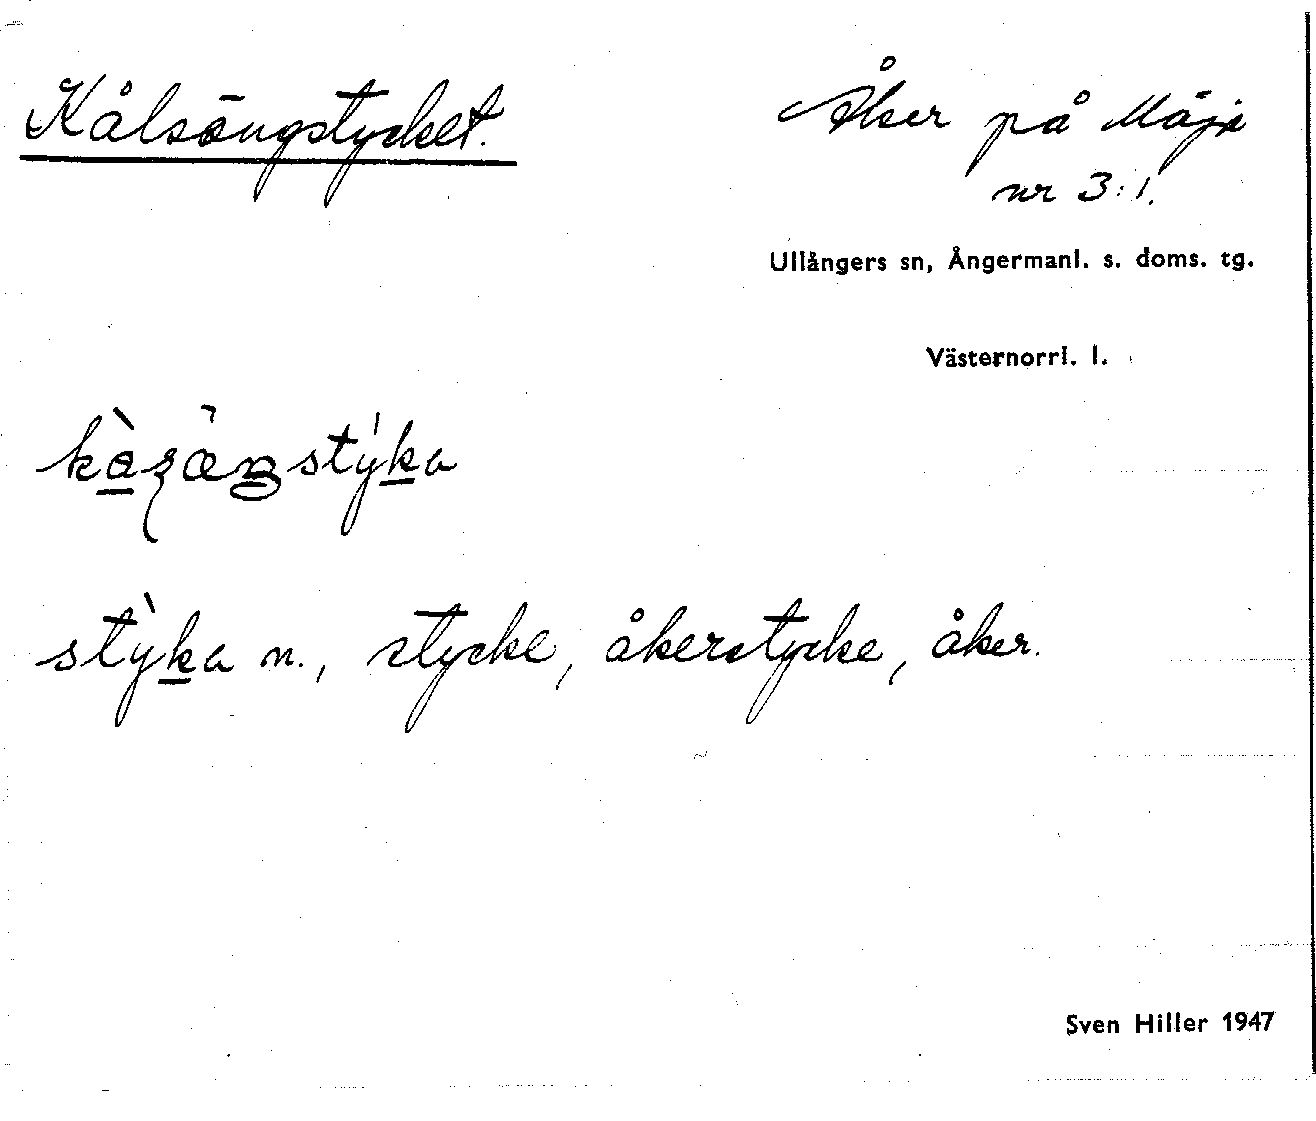 Kålsängstycket.
Åker på Mäja
nr 3:1.
Ullångers sn, Ångermanl. s. doms. tg.
Västernorrl. l.
stỳka n., stycke, åkerstycke, åker.
Sven Hiller 1947